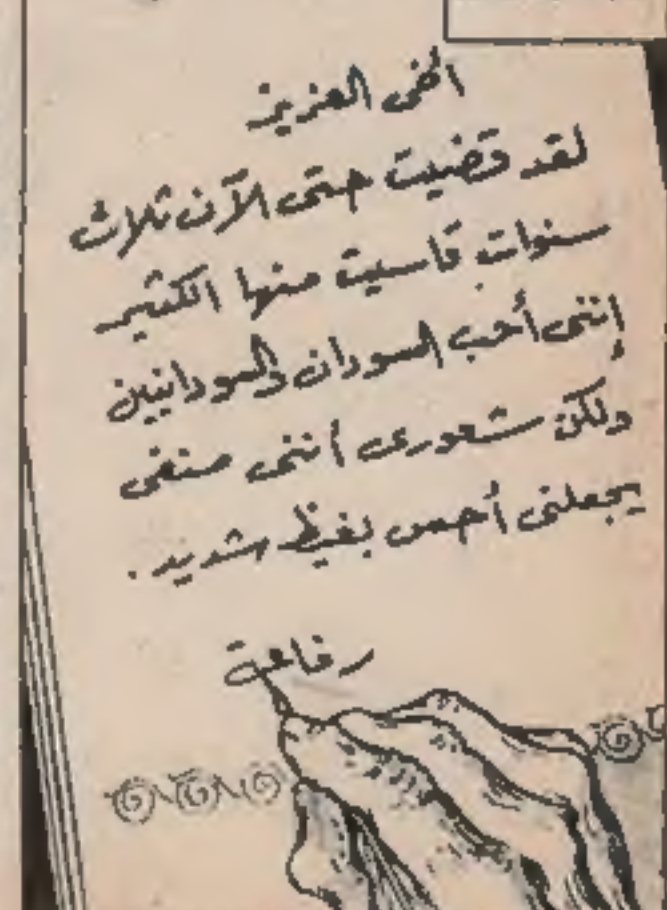 أخى العزيز
لقد قضيت حتى الآن ثلاث
سنوات قاسيت منها الكثير
إننى أحب السودان والسودانيين
ولكن شعورى أننى منفى
يجعلنى أحس بغيظ شديد .
رفاعة